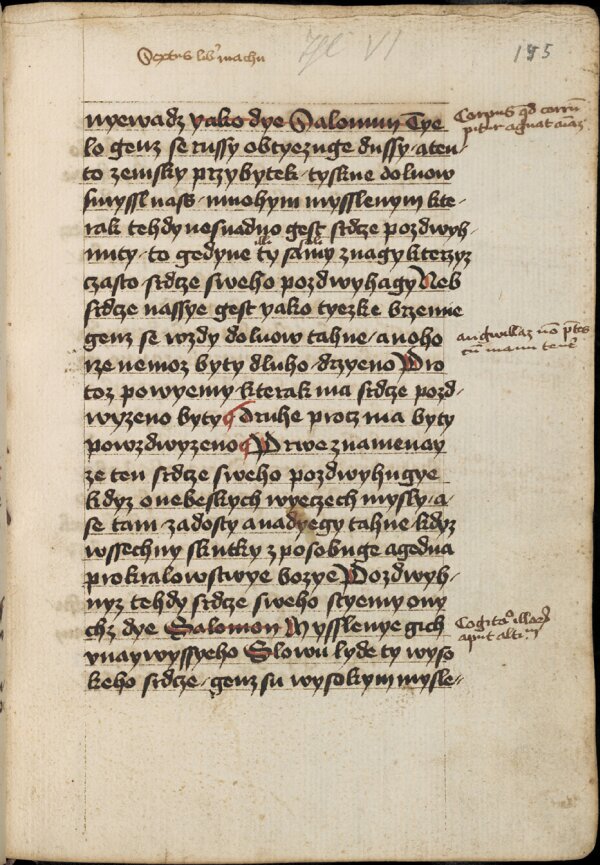 Sextus lib' machu
VI
155
nyewadz yako dye Salomun Tye
lo genz se russy obtyezuge dussy a ten
to zemsky przybytek tyskne doluow
smyssl nass mnohym mysslenym kte-
rak tehdy nesnadno gest srdcze pozdwyh-
nuty to gedyne ty samy znagy kterzyz
czasto srdcze sweho pozdwyhagy Neb
srdcze nassye gest yako tyezke brzemie
genz se wzdy doluow tahne a noho
rze nemoz byty dluho drzyeno Pro
toz powyemy kterak ma srdcze pozd-
wyzeno byty Druhe procz ma byty
powzdwyzeno Prwe znamenay
ze ten srdcze sweho pozdwyhugye
kdyz o nebeskych wyeczech mysly a
se tam zadosty a nadyegy tahne kdyz
wssechny skutky zposobuge a gedna
pro kralowstwye bozye Pozdwyh-
nyz tehdy srdcze sweho styemy ony
chz dye Salomon Mysslenye gich
vnaywyssyeho Slowu lyde ty wyso
keho srdcze genz su wysokym mysle-
Corpus qd corrum
pitur aguat aiaz